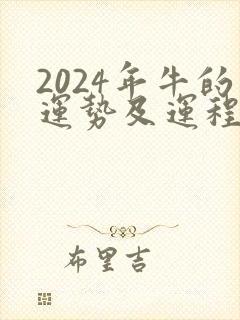 2024年牛的
運勢及運程
布里吉